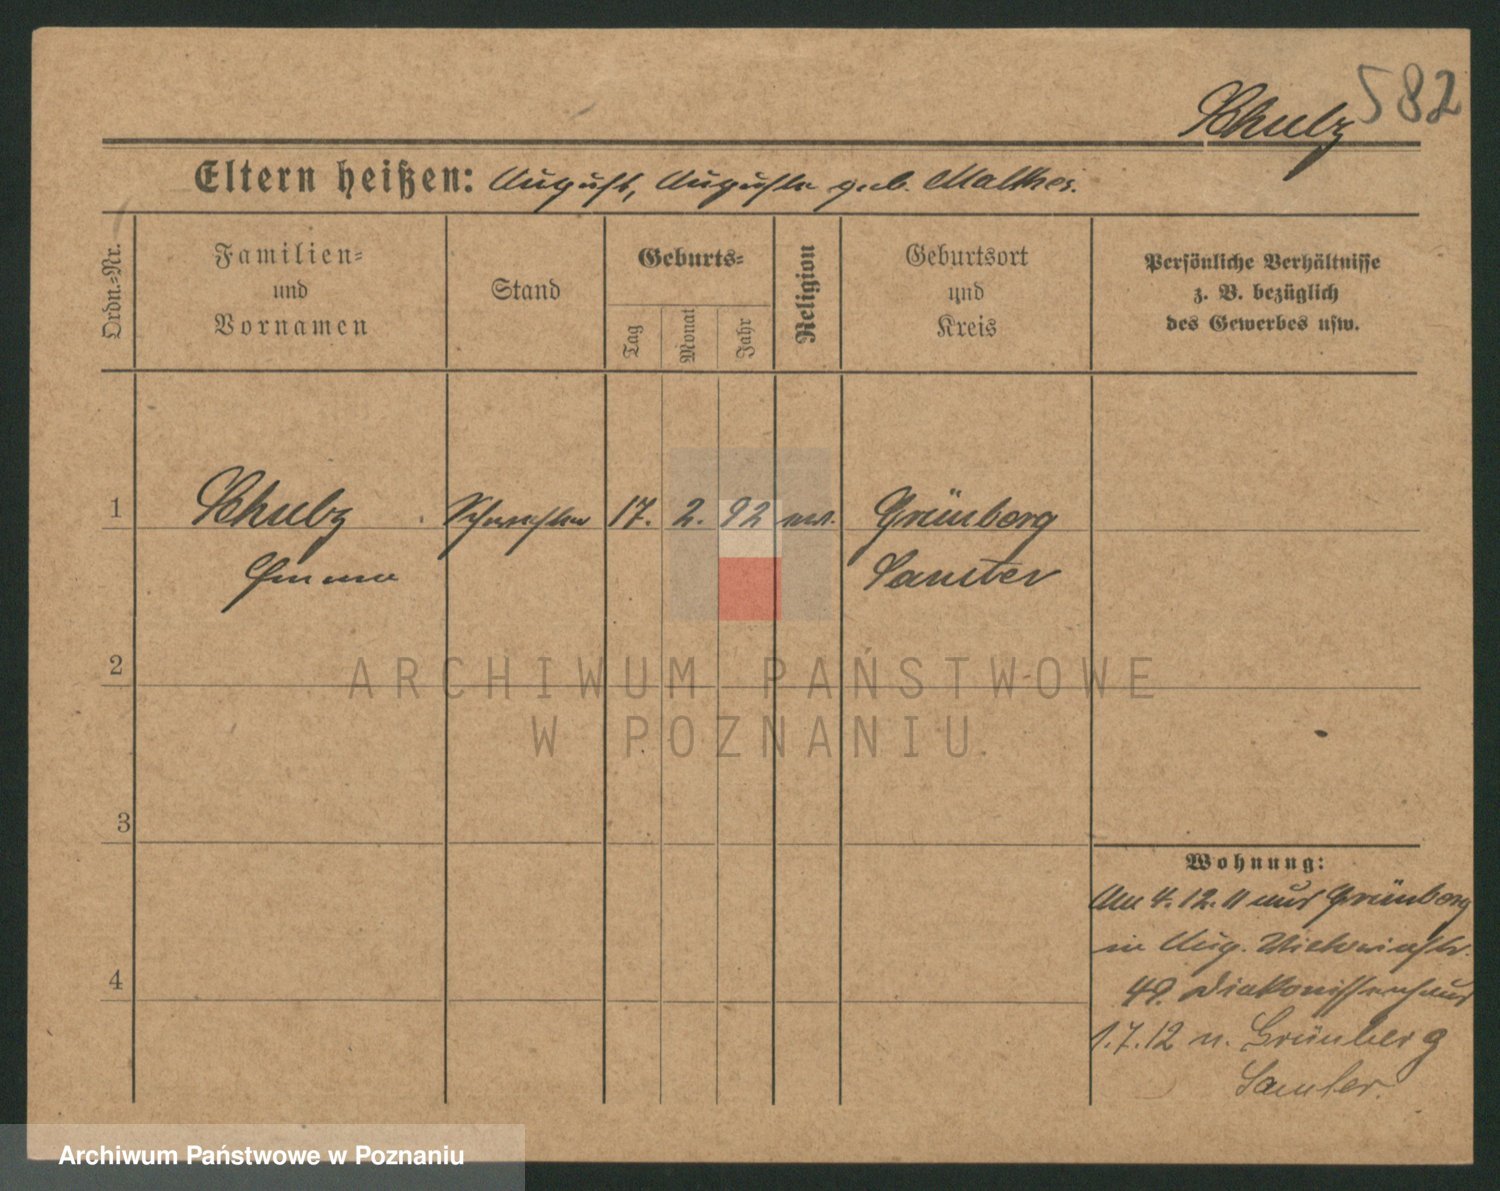 582
Schulz
Eltern heißen: August, Auguste geb. Malthes.
Ordn.-Nr.
Familien-
und
Vornamen
Stand
Geburts-
Tag
Monat
Jahr
Religion
Geburtsort
und
Kreis
Persönliche Verhältnisse
z. B. bezüglich
des Gewerbes usw.
1
Schulz
Emma
Schwester
17.
2.
92
ev.
Grünberg
Samter
2
3
4
Wohnung:
Am 4.12.11 aus Grünberg
in Aug. Viktoriastr.
49. Diakonissenhaus
1.7.12 n. Grünberg
Samter.
ARCHIWUM PAŃSTWOWE
W POZNANIU
Archiwum Państwowe w Poznaniu